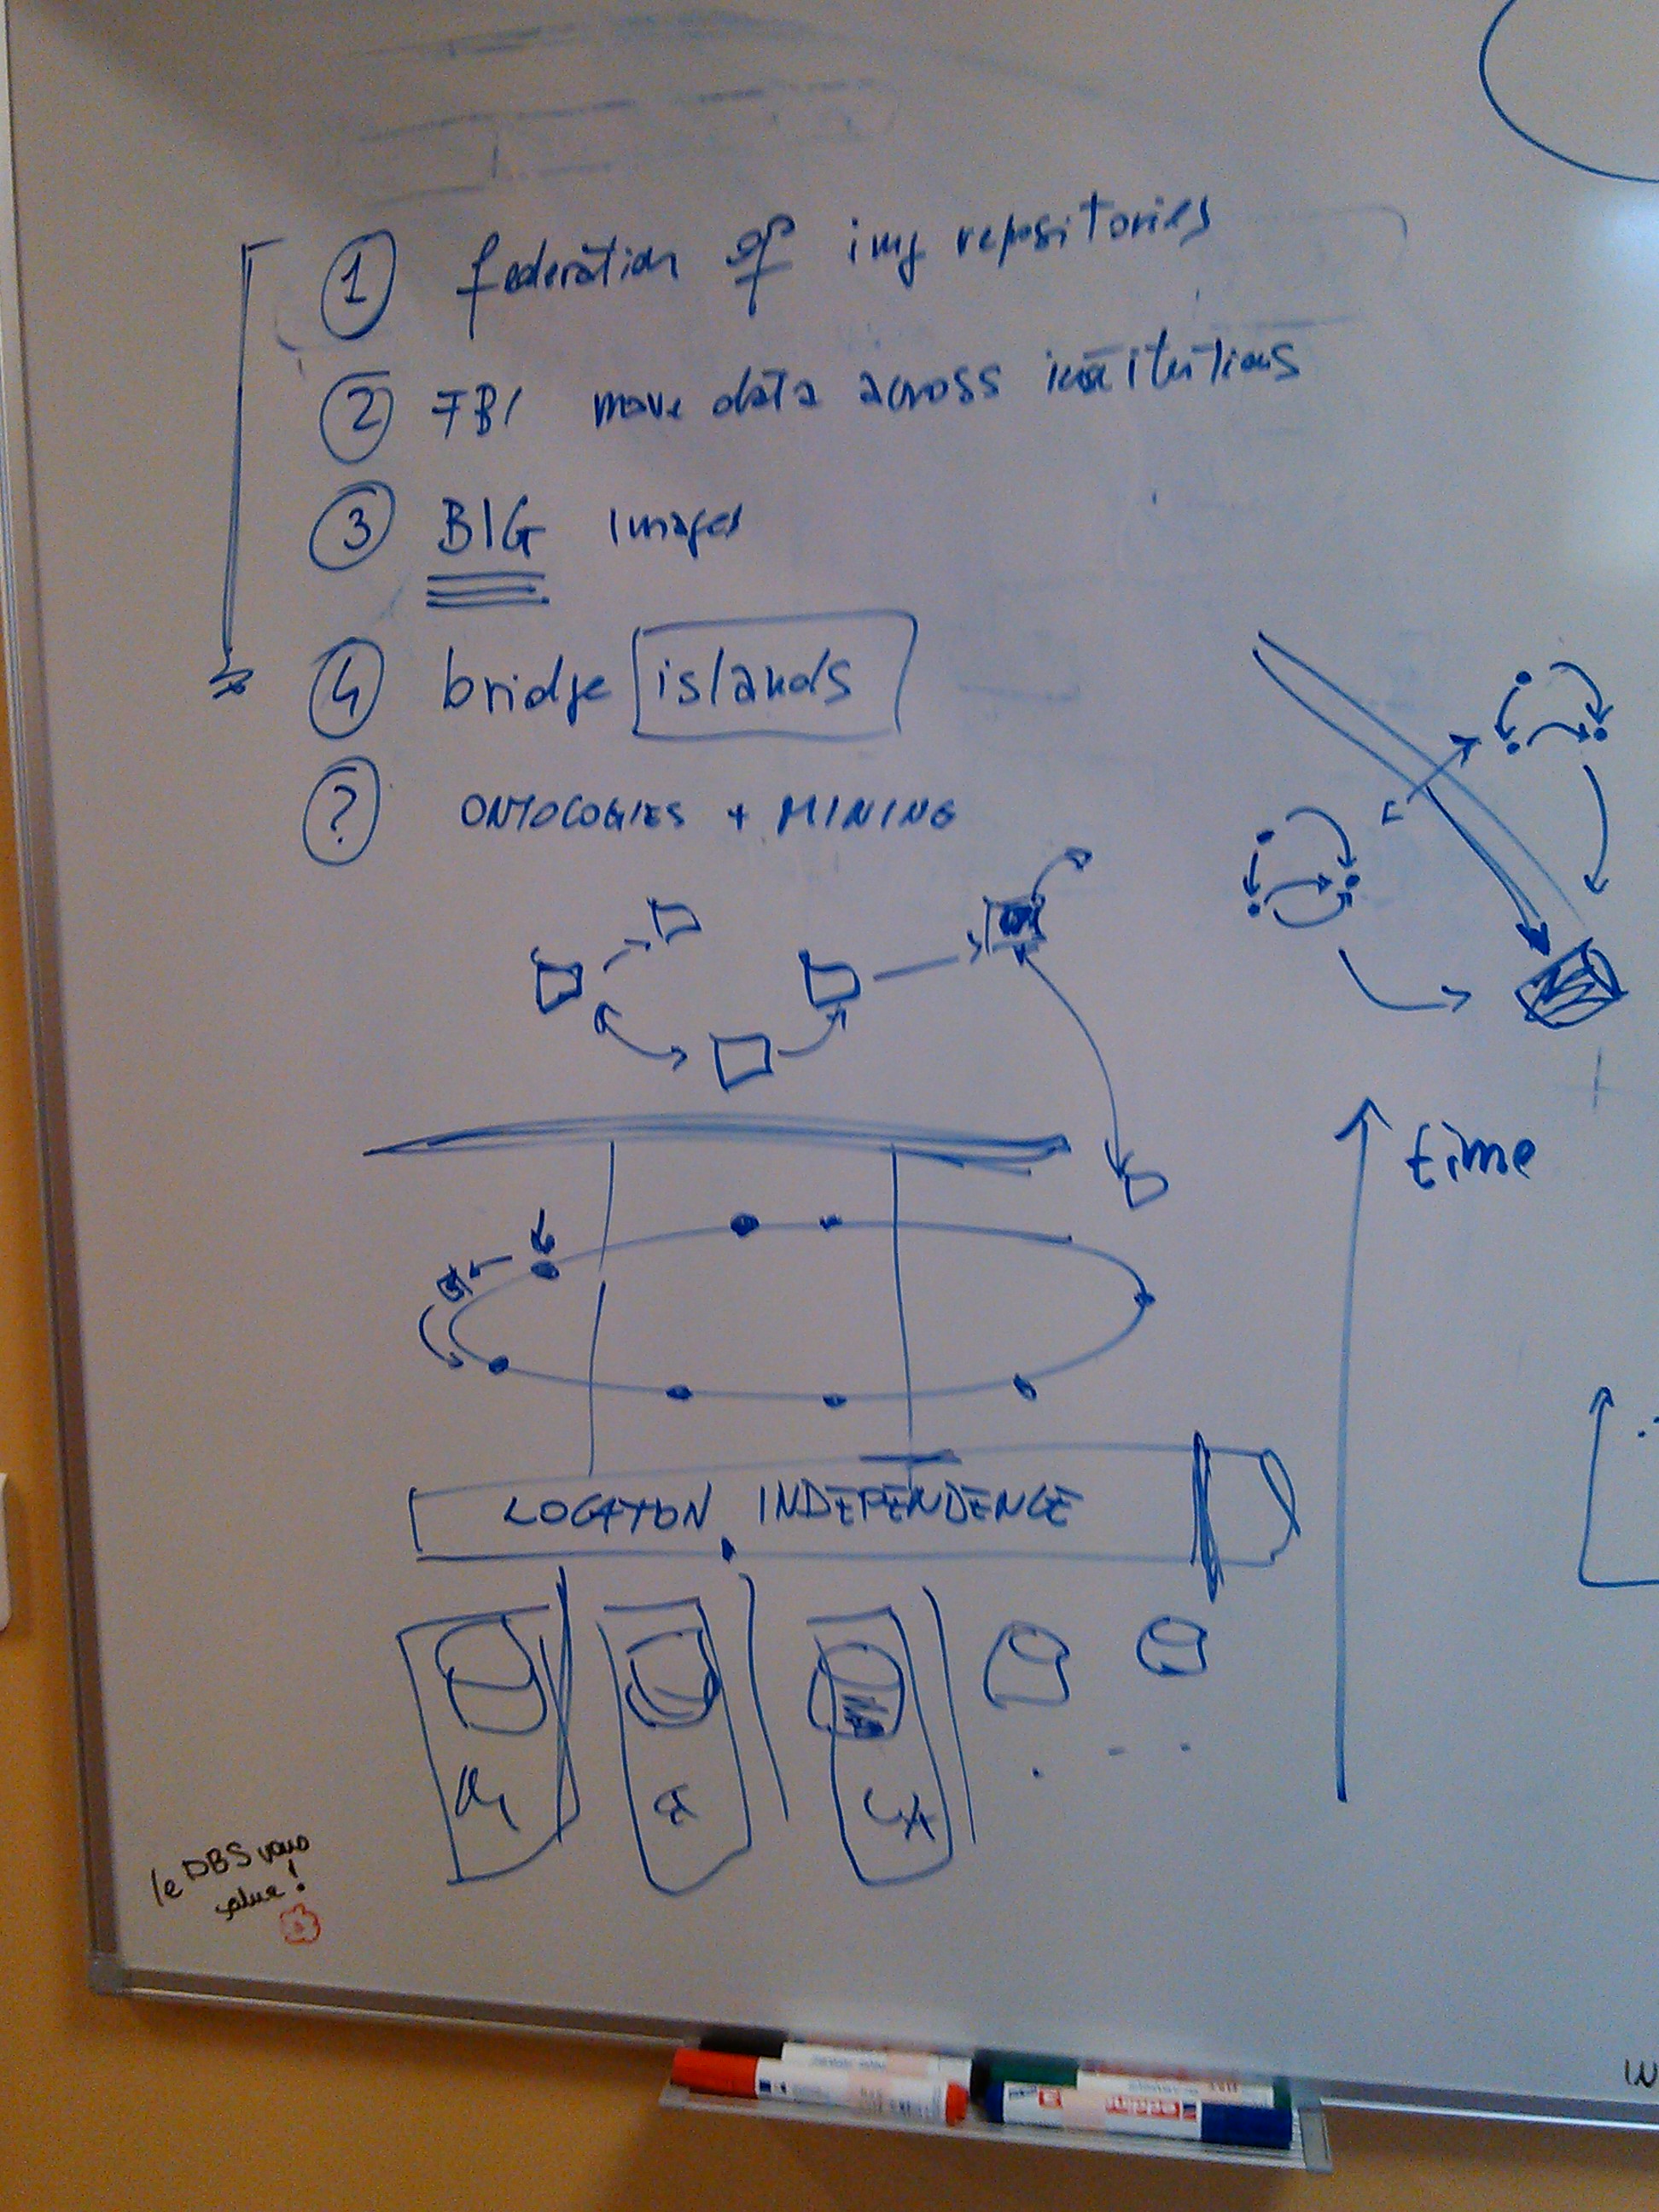 1 federation of img repositories
2 FBI move data across institutions
3 BIG images
4 bridge islands
? ONTOLOGIES + MINING
time
LOCATION INDEPENDENCE
le DBS vous
salue!